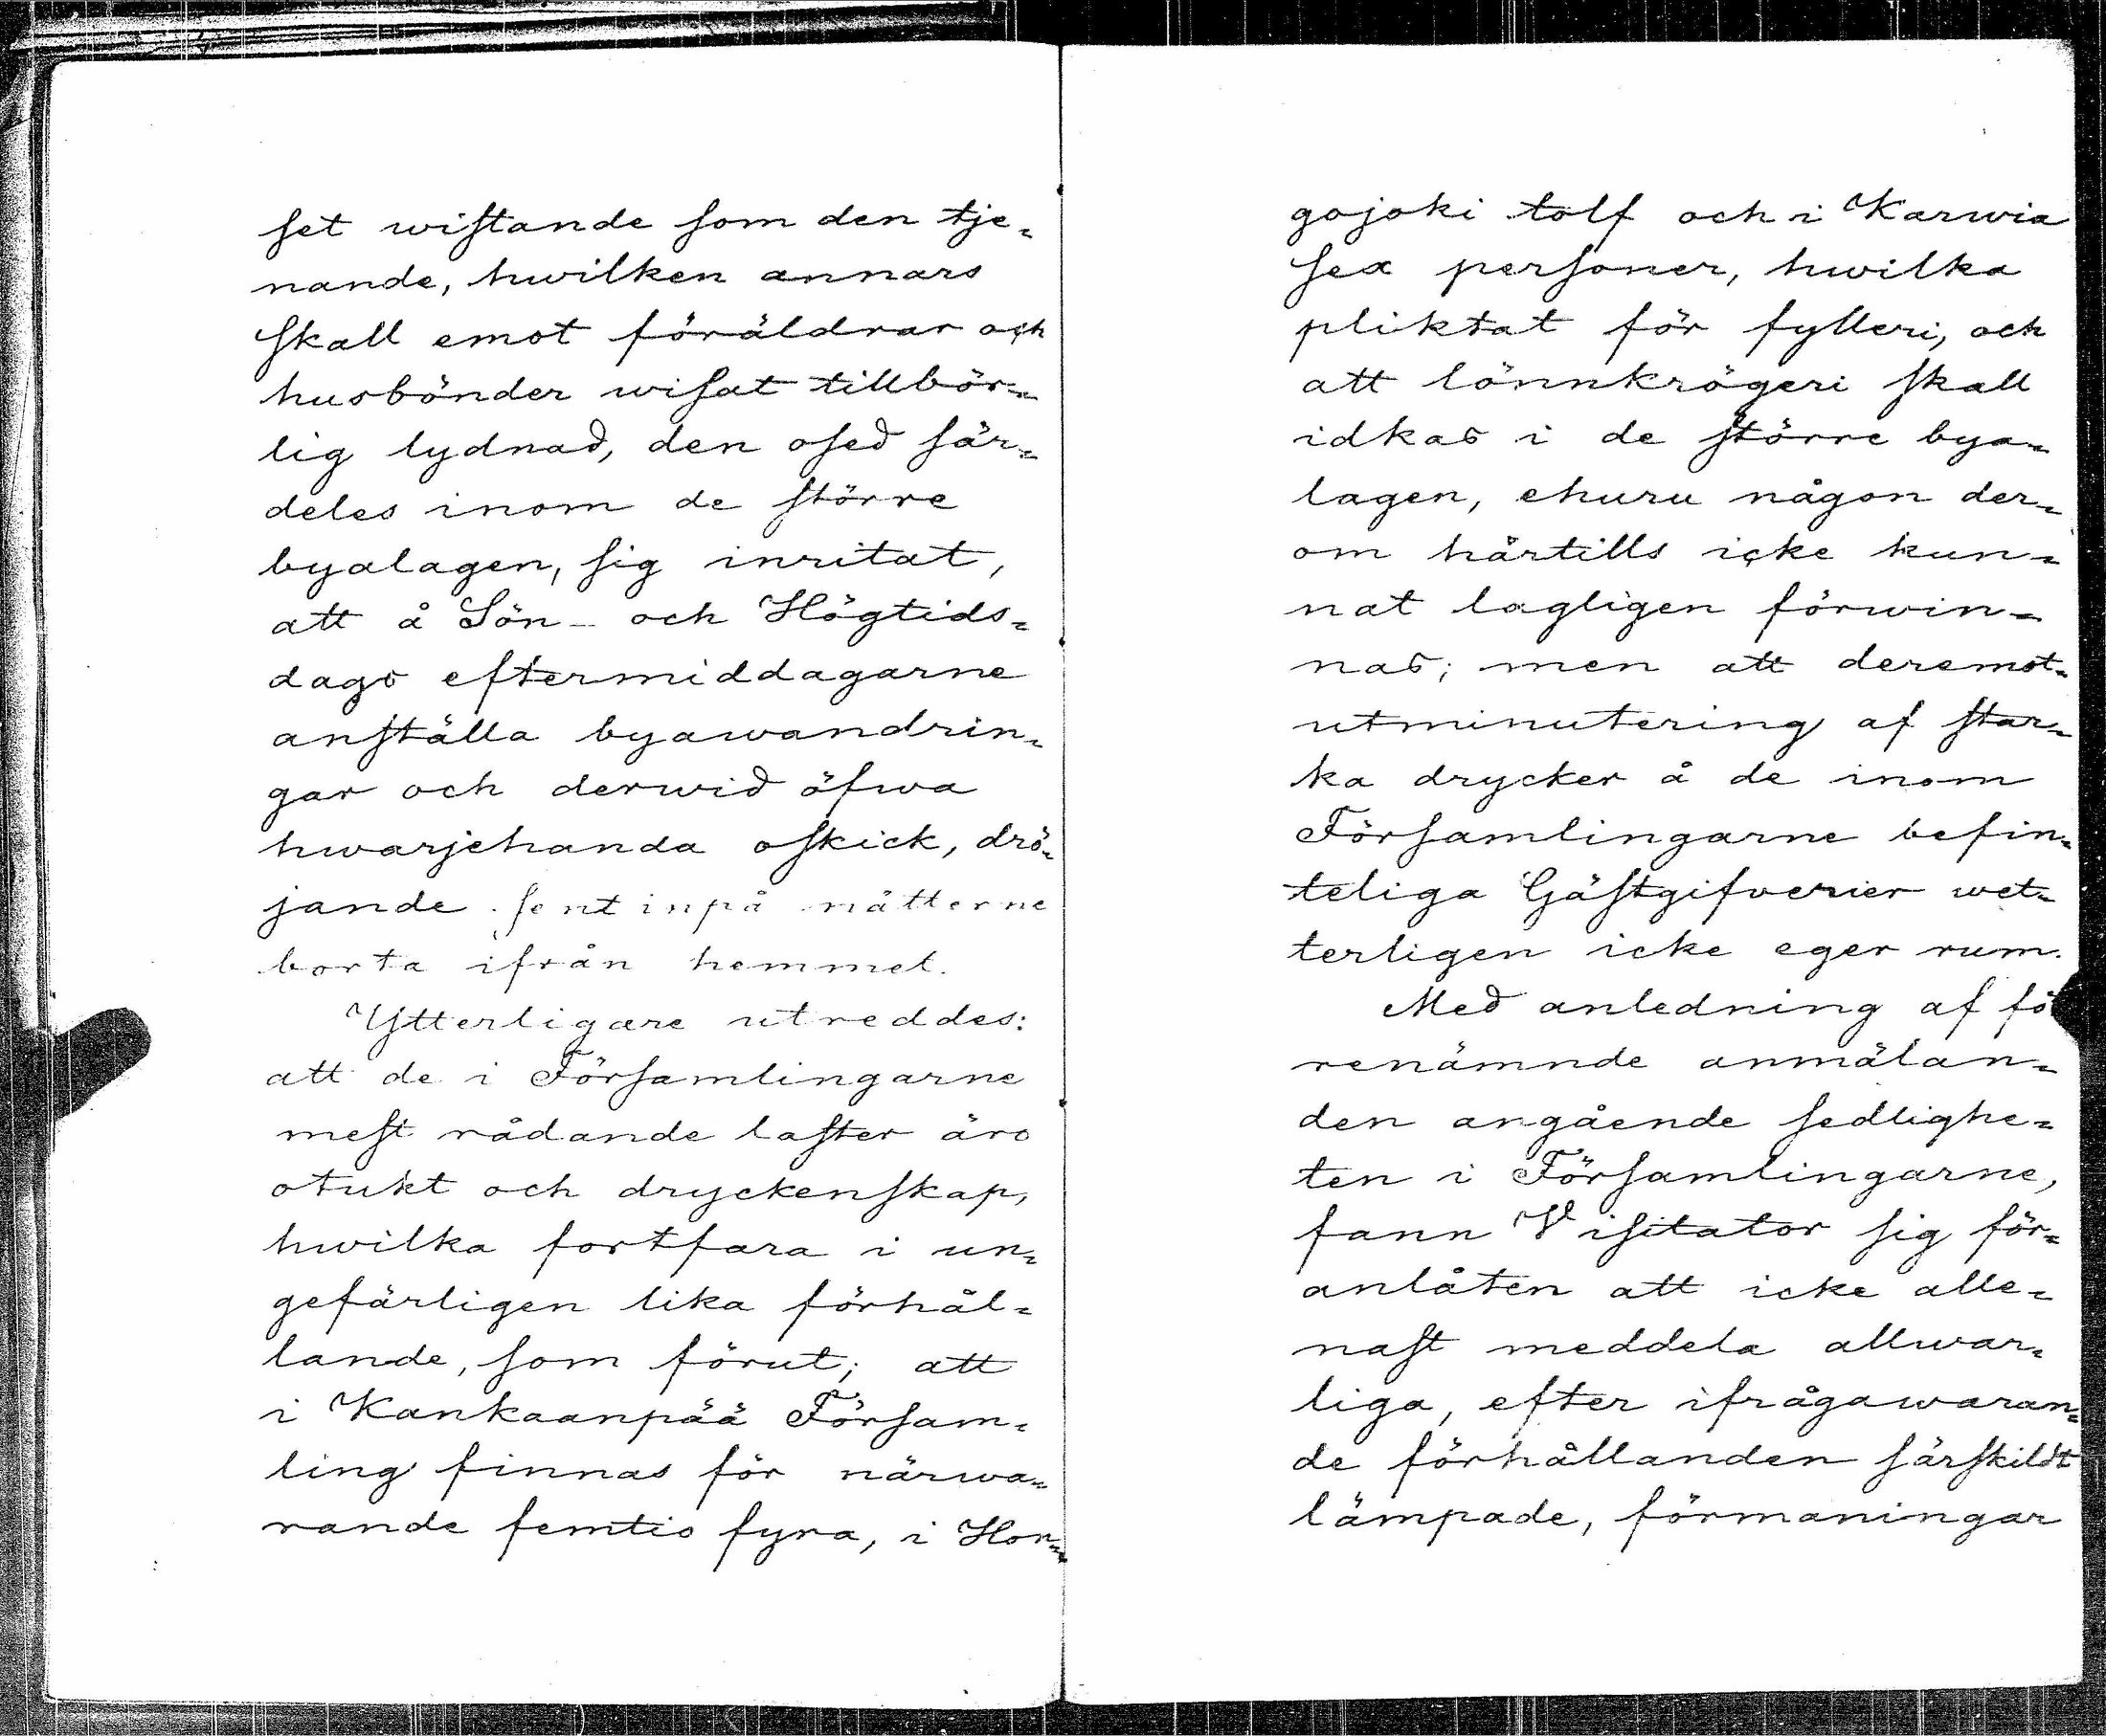 set wistande som den tje-
nande, hwilken annars
skall emot föräldrar och
husbönder wisat tillbör-
lig lydnad, den osed sär-
deles inom de större
byalagen, sig inritat,
att å Sön- och Högtids-
dags eftermiddagarne
anställa byawandrin-
gar och derwid öfwa
hwarjehanda oskick, drö-
jande sent inpå nätterne
borta ifrån hemmet.
Ytterligare utreddes:
att de i Församlingarne
mest rådande laster äro
otukt och dryckenskap,
hwilka fortfara i un-
gefärligen lika förhål-
lande, som förut; att
i Kankaanpää Försam-
ling finnas för närwa-
rande femtio fyra, i Hon-
gojoki tolf och i Karwia
sex personer, hwilka
pliktat för fylleri, och
att lönnkrögeri skall
idkas i de större bya-
lagen, ehuru någon der-
om härtills icke kun-
nat lagligen förwin-
nas; men att deremot
utminutering af star-
ka drycker å de inom
Församlingarne befin-
teliga Gästgifverier wet-
terligen icke eger rum.
Med anledning af fö
renämnde anmälan-
den angående sedlighe-
ten i Församlingarne,
fann Visitator sig för-
anlåten att icke alle-
nast meddela allwar-
liga, efter ifrågawaran-
de förhållanden särskildt
lämpade, förmaningar